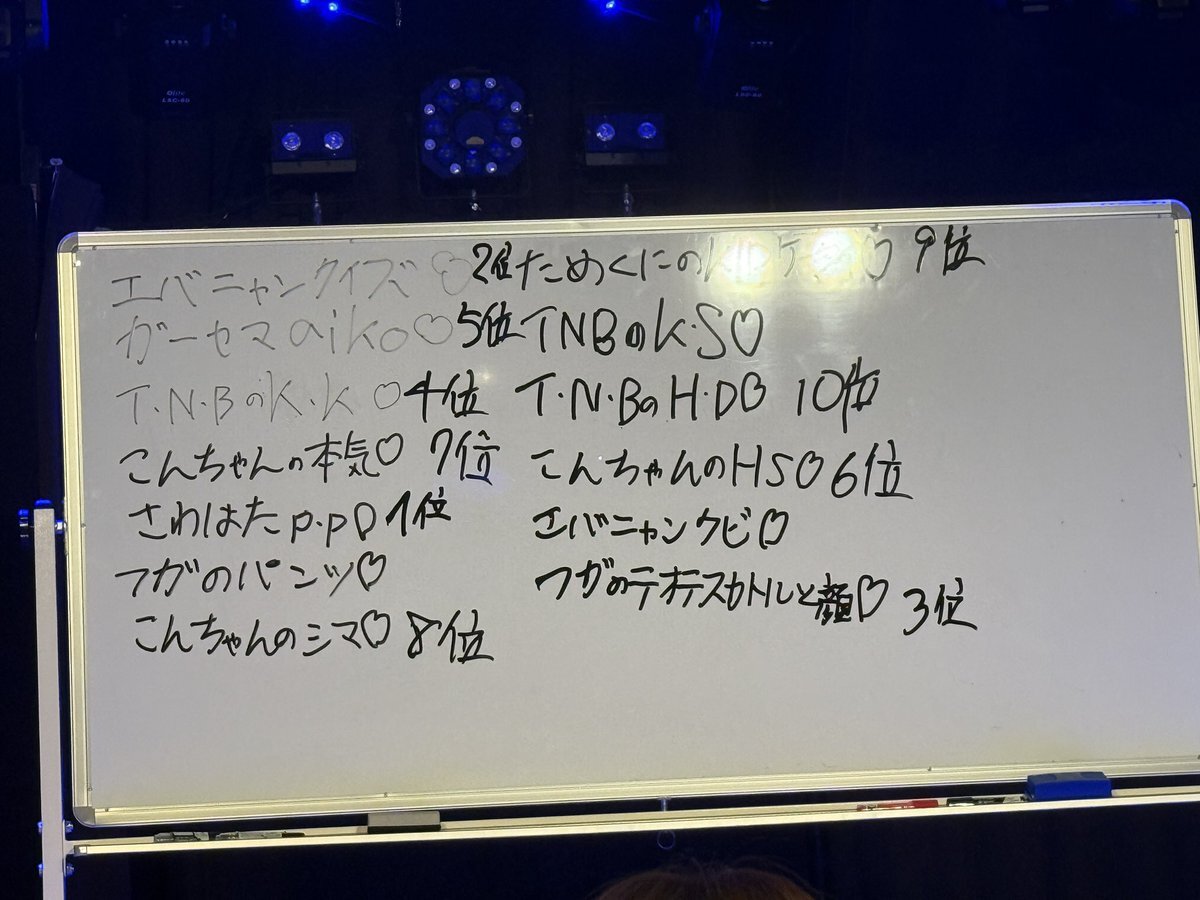 エバニャンクイズ♡2位
ガーセマaiko♡5位
T.N.BのK.K♡4位
こんちゃんの本気♡7位
さわはたP.P♡1位
フガのパンツ♡
こんちゃんのシマ♡8位
ためくにの ♡9位
TNBのK.S♡
T.N.BのH.D♡10位
こんちゃんのHS♡6位
エバニャンクビ♡
フガのテオテスカトルと顔♡3位